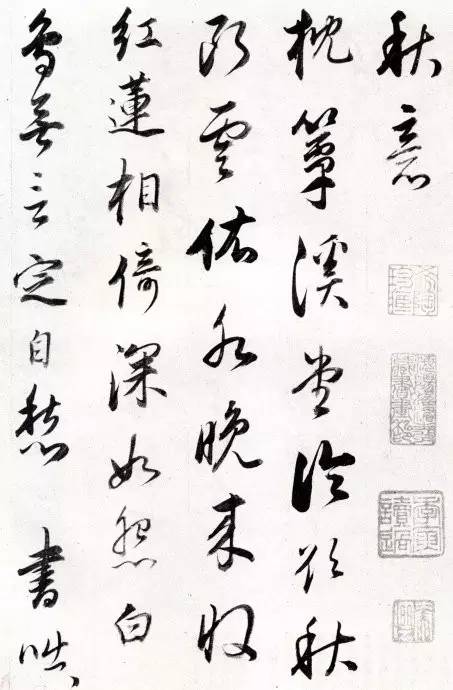 秋意
枕簟溪堂冷欲秋
斷雲依水晚來收
紅蓮相倚深如怨白
鳥無言定自愁 書咄々